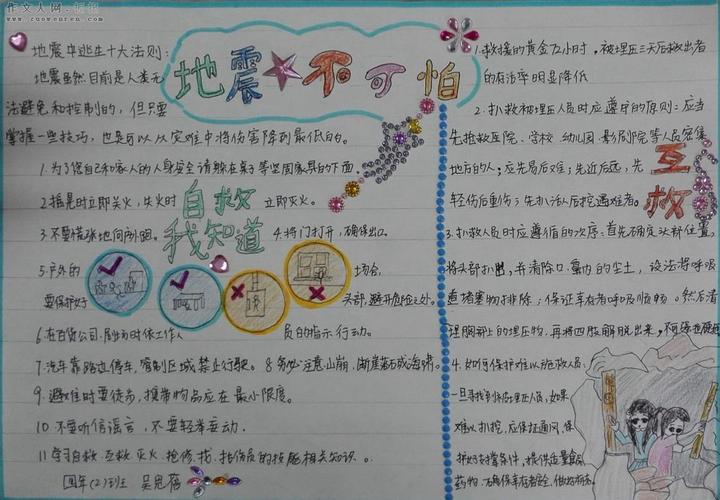 作文人网·板报
www.zuowenren.com
地震中逃生十大法则:
地震虽然目前是人类无
法避免和控制的，但只要
掌握一些技巧，也是可以从灾难中将伤害降到最低的。
地震不可怕
1.为了您自己和家人的人身安全请躲在桌子等坚固家具的下面.
2.摇晃时立即关火，失火时
立即灭火。
自救
我知道
3.不要慌张地向外跑.
4.将门打开，确保出口.
5.户外的
场合,
要保护好
头部,避开危险之处.
6.在百货公司.剧场时依工作人
员的指示行动。
7.汽车靠路边停车,管制区域禁止行驶。
8.务必注意山崩,断崖落石或海啸。
9.避难时要徒步，携带物品应在最小限度。
10.不要听信谣言，不要轻举妄动.
11.学习自救.互救.灭火.抢修.
技能相关知识。
四年(2)班
1.救援的黄金72小时，被埋压三天后救出者
的存活率明显降低
2.扒救被埋压人员时应遵守的原则:应当
先抢救医院、学校、幼儿园.影剧院等人员密集
地方的人;应先易后难;先近后远,先
轻伤后重伤;先扒活人后挖遇难者。
互救
3.扒救人员时应遵循的次序:首先确定头部位置,
将头部扒出,并清除口.鼻内的尘土，设法将呼吸
道堵塞物排除;保证幸存者呼吸顺畅。然后清
理胸部上的埋压物，再将四肢解脱出来,
4.如何保护难以施救人员:
一旦寻找到
人员,如果
难以扒挖，应保证通风,保
护好支撑条件，提供适量食品
药物.确保幸存者